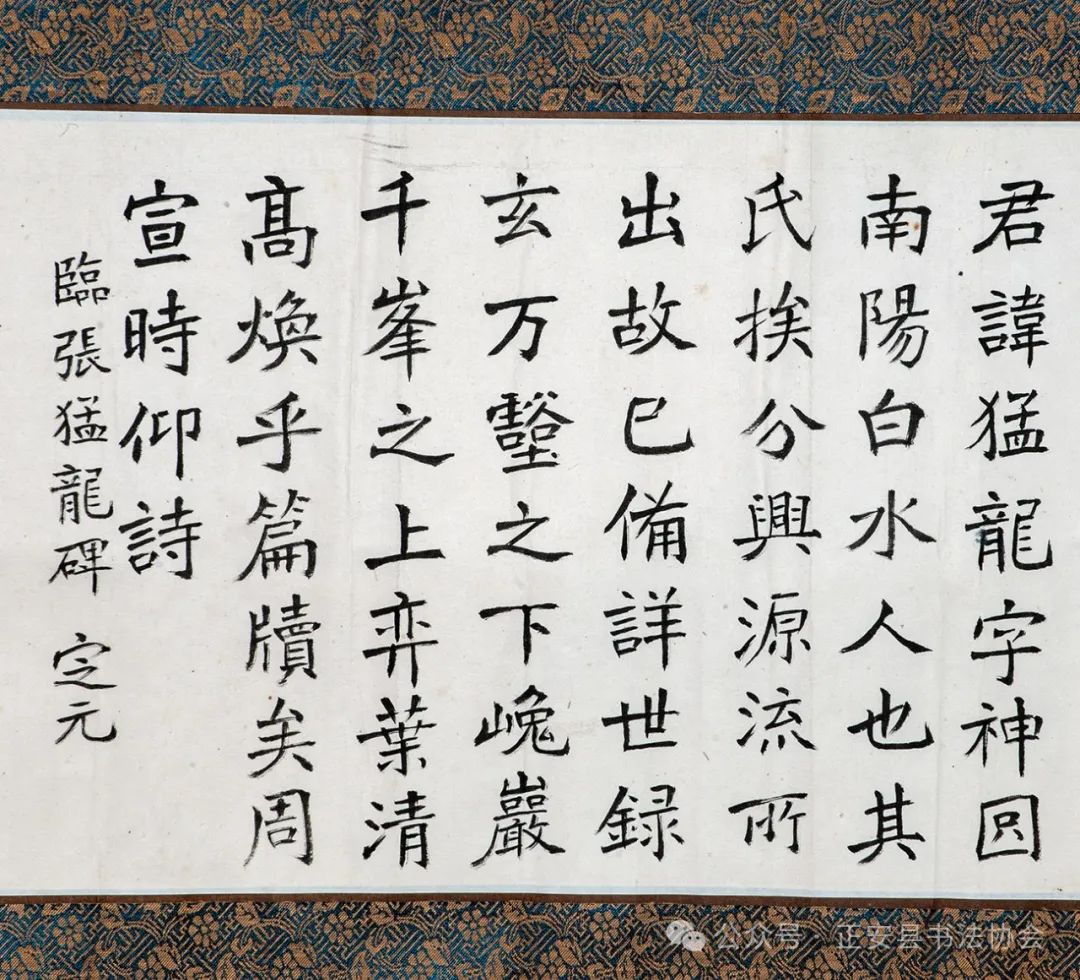 君諱猛龍字神囙
南陽白水人也其
氏挨分興源流所
出故已備詳世録
玄万壑之下巉巖
千峯之上弈葉清
高焕乎篇牘矣周
宣時仰詩
臨張猛龍碑 定元
公众号 · 正安县书法协会